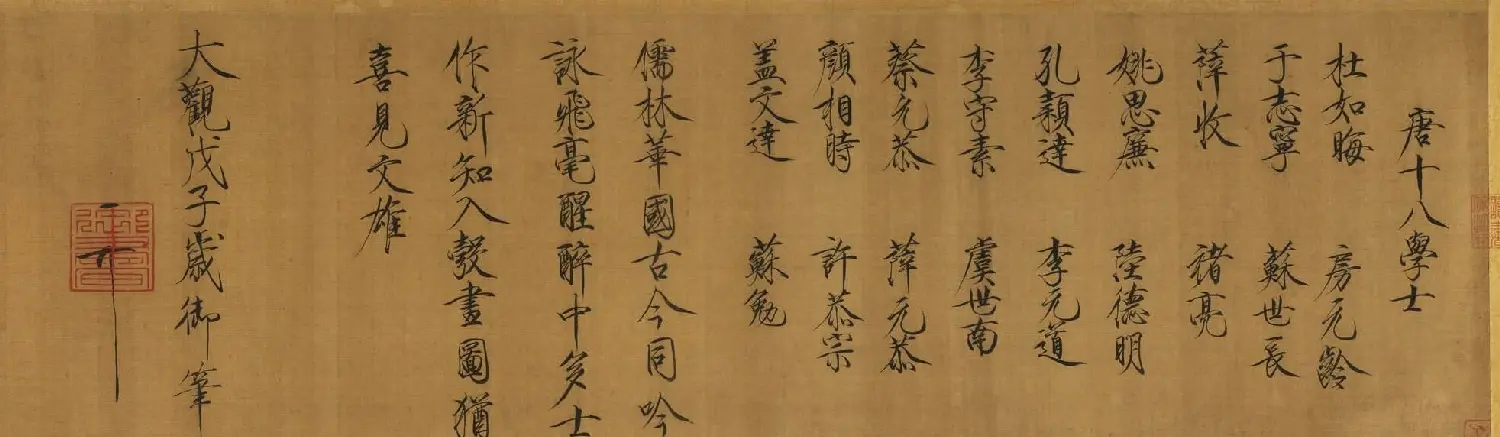 唐十八學士
杜如晦 房元齡
于志寧 蘇世長
薛收 褚亮
姚思廉 陸德明
孔穎達 李元道
李守素 虞世南
蔡允恭 薛元恭
顏相時 許恭宗
盖文達 蘇勉
儒林華國古今同吟
詠飛毫醒醉中多士
作新知入彀畫圖猶
喜見文雄
大觀戊子歲御筆